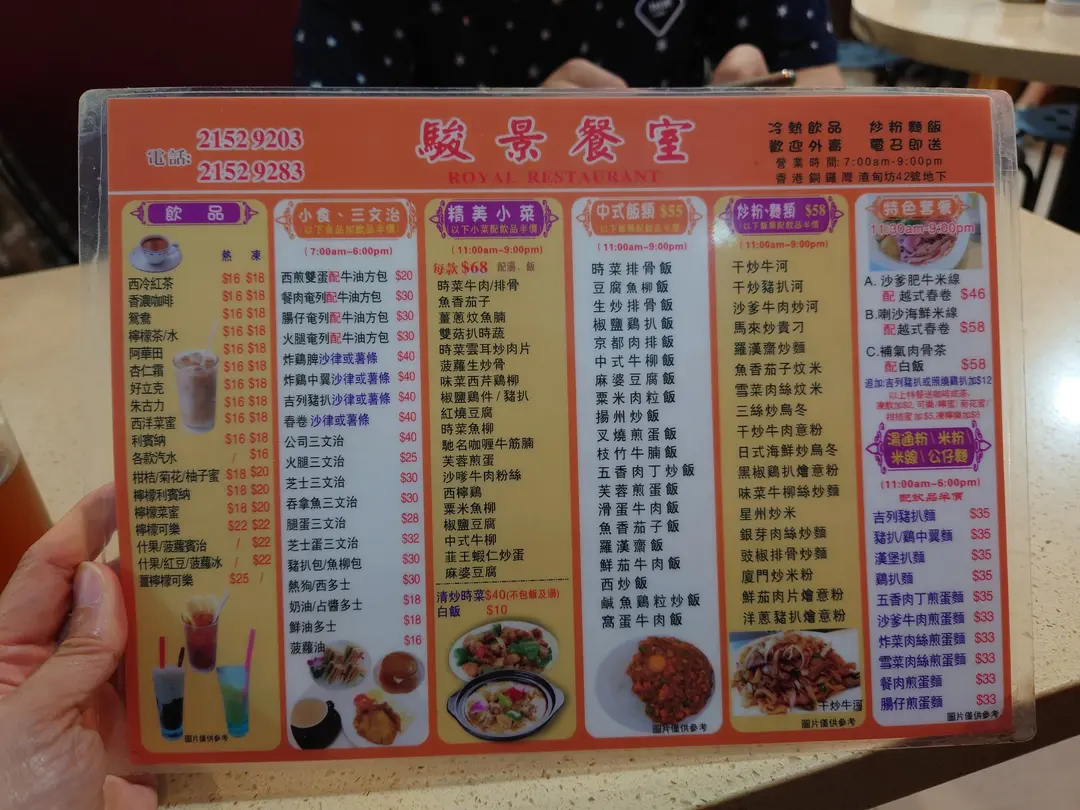 電話:
2152 9203
2152 9283
駿景餐室
ROYAL RESTAURANT
冷熱飲品 炒粉麵飯
歡迎外賣 電召即送
營業時間:7:00am-9:00pm
香港銅鑼灣渣甸坊42號地下
飲品
熱 凍
西冷紅茶 $16 $18
香濃咖啡 $16 $18
鴛鴦 $16 $18
檸檬茶/水 $16 $18
阿華田 $16 $18
杏仁霜 $16 $18
好立克 $16 $18
朱古力 $16 $18
西洋菜蜜 $16 $18
利賓納 $16 $18
各款汽水 / $16
柑桔/菊花/柚子蜜 $18 $20
檸檬利賓納 $18 $20
檸檬菜蜜 $18 $20
檸檬可樂 $22 $22
什果/菠蘿賓治 / $22
什果/紅豆/菠蘿冰 / $22
薑檸檬可樂 $25 /
圖片僅供參考
小食、三文治
以下食品加飲品半價!
(7:00am-6:00pm)
西煎雙蛋配牛油方包 $20
餐肉奄列配牛油方包 $30
腸仔奄列配牛油方包 $30
火腿奄列配牛油方包 $30
炸鷄脾沙律或薯條 $40
炸鷄中翼沙律或薯條 $40
吉列豬扒沙律或薯條 $40
春卷沙律或薯條 $40
公司三文治 $40
火腿三文治 $25
芝士三文治 $30
吞拿魚三文治 $30
腿蛋三文治 $28
芝士蛋三文治 $32
豬扒包/魚柳包 $30
熱狗/西多士 $30
奶油/占醬多士 $18
鮮油多士 $18
菠蘿油 $16
精美小菜
以下小菜配飲品半價!
(11:00am-9:00pm)
每款$68 配湯、飯
時菜牛肉/排骨
魚香茄子
薑蔥炆魚腩
雙菇扒時蔬
時菜雲耳炒肉片
菠蘿生炒骨
味菜西芹鷄柳
椒鹽鷄件/豬扒
紅燒豆腐
時菜魚柳
馳名咖喱牛筋腩
芙蓉煎蛋
沙嗲牛肉粉絲
西檸鷄
粟米魚柳
椒鹽豆腐
中式牛柳
韮王蝦仁炒蛋
麻婆豆腐
清炒時菜$40(不包飯及湯)
白飯 $10
中式飯類 $55
(11:00am-9:00pm)
時菜排骨飯
豆腐魚柳飯
生炒排骨飯
椒鹽鷄扒飯
京都肉排飯
中式牛柳飯
麻婆豆腐飯
粟米肉粒飯
揚州炒飯
叉燒煎蛋飯
枝竹牛腩飯
五香肉丁炒飯
芙蓉煎蛋飯
滑蛋牛肉飯
魚香茄子飯
羅漢齋飯
鮮茄牛肉飯
西炒飯
鹹魚鷄粒炒飯
窩蛋牛肉飯
圖片僅供參考
炒粉、麵類 $58
(11:00am-9:00pm)
干炒牛河
干炒豬扒河
沙爹牛肉炒河
馬來炒貴刁
羅漢齋炒麵
魚香茄子炆米
雪菜肉絲炆米
三絲炒烏冬
干炒牛肉意粉
日式海鮮炒烏冬
黑椒鷄扒燴意粉
味菜牛柳絲炒麵
星州炒米
銀芽肉絲炒麵
豉椒排骨炒麵
廈門炒米粉
鮮茄肉片燴意粉
洋蔥豬扒燴意粉
干炒牛河
圖片僅供參考
特色套餐
11:30am-9:00pm
A. 沙爹肥牛米線
配 越式春卷 $46
B.喇沙海鮮米線
配 越式春卷 $58
C.補氣肉骨茶
配白飯 $58
追加:吉列豬扒或照燒鷄扒加$12
以上特餐送咖啡或茶,
凍飲加$2, 可樂/檸蜜/菊花蜜/
柑桔蜜加$5,凍檸樂加$8
湯通粉\米粉\
米線\公仔麵
(11:00am-6:00pm)
配飲品半價
吉列豬扒麵 $35
豬扒/鷄中翼麵 $35
漢堡扒麵 $35
鷄扒麵 $35
五香肉丁煎蛋麵 $35
沙爹牛肉煎蛋麵 $33
炸菜肉絲煎蛋麵 $33
雪菜肉絲煎蛋麵 $33
餐肉煎蛋麵 $33
腸仔煎蛋麵 $33
圖片僅供參考